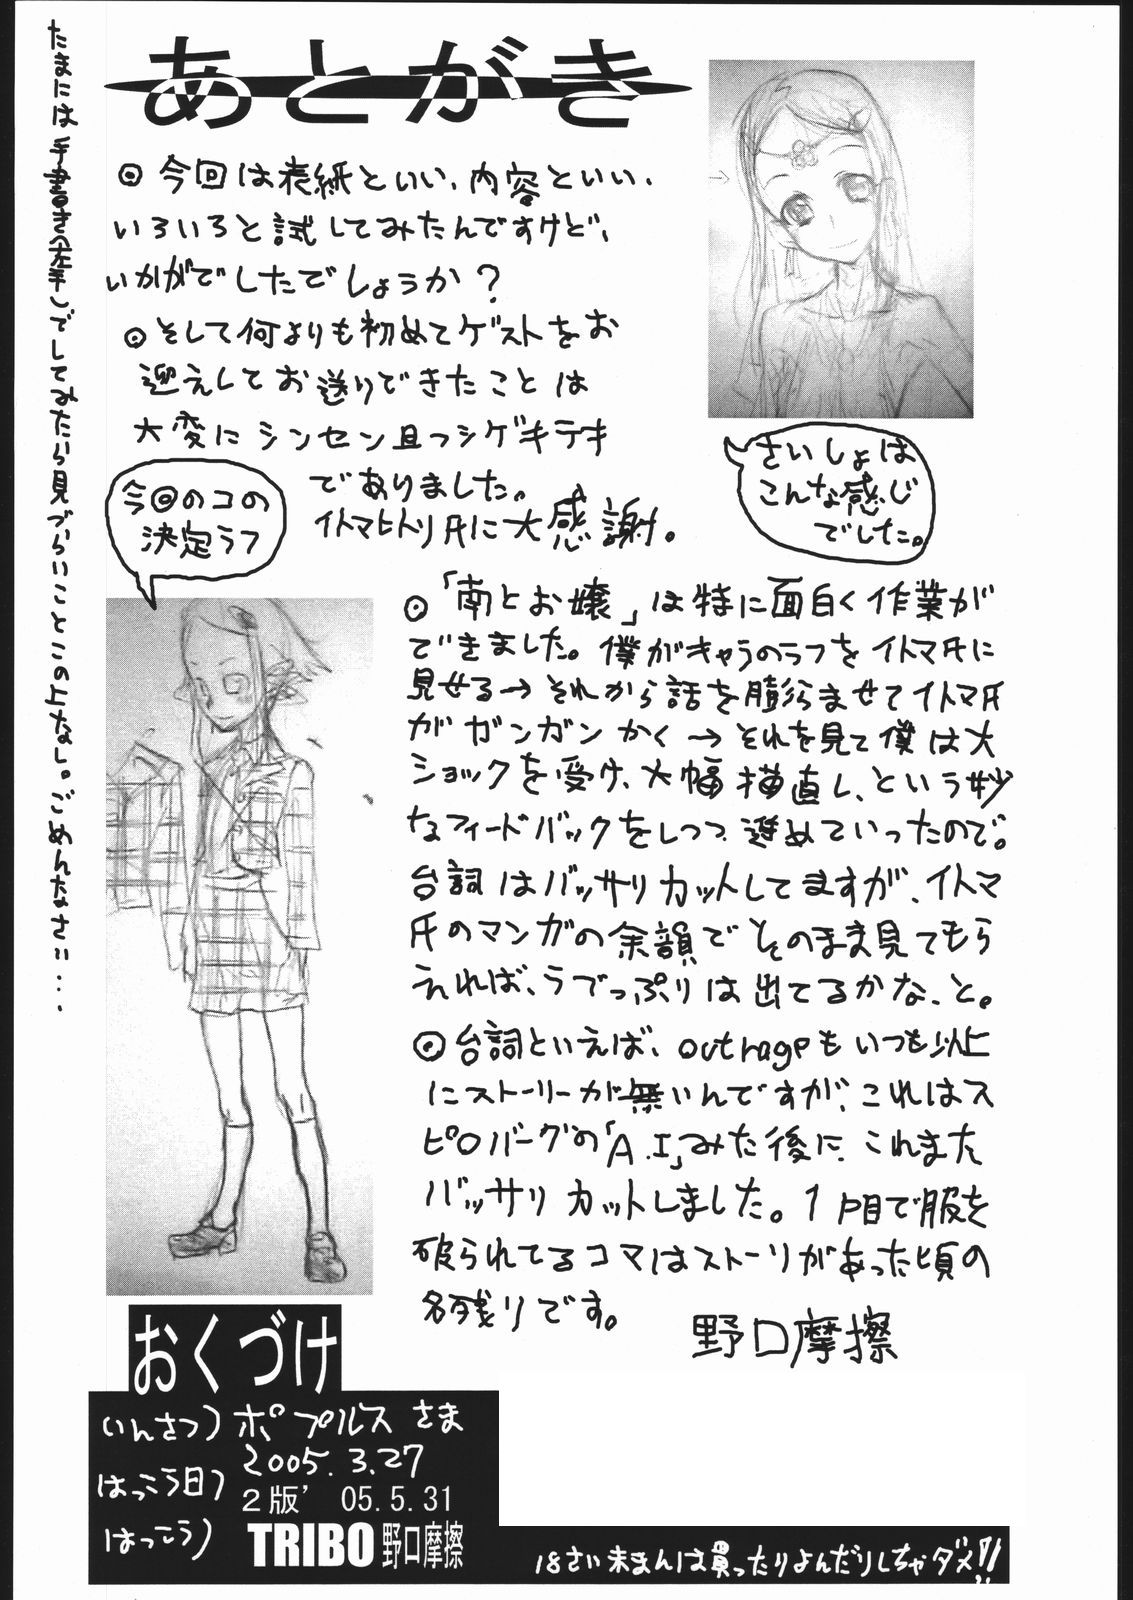 あとがき
たまには手書き(左手)でしてみたら見づらいことこの上なし。ごめんなさい...
◎今回は表紙といい、内容といい、
いろいろと試してみたんですけど、
いかがでしたでしょうか?
◎そして何よりも初めてゲストをお
迎えしてお送りできたことは
大変にシンセン且つシゲキテキ
でありました。
イトマヒトリ氏に大感謝。
さいしょは
こんな感じ
でした。
今回のコの
決定ラフ
◎「南とお嬢」は特に面白く作業が
できました。僕がキャラのラフをイトマ氏に
見せる→それから話を膨らませてイトマ氏
がガンガンかく→それを見て僕は大
ショックを受け、大幅描直し、という妙
なフィードバックをしつつ進めていったので。
台詞はバッサリカットしてますが、イトマ
氏のマンガの余韻でそのまま見てもら
えれば、うでっぷりは出てるかな、と。
◎台詞といえば、outrageもいつも以上
にストーリーが無いんですが、これはス
ピルバーグの「A.I」みた後に、これまた
バッサリカットしました。1P目で服を
破られてるコマはストーリがあった頃の
名残りです。
野口摩擦
おくづけ
いんさつ)ポプルスさま
はっこう日)2005.3.27
2版' 05.5.31
はっこう)TRIBO野口摩擦
18さい未まんは買ったりよんだりしちゃダメ!!